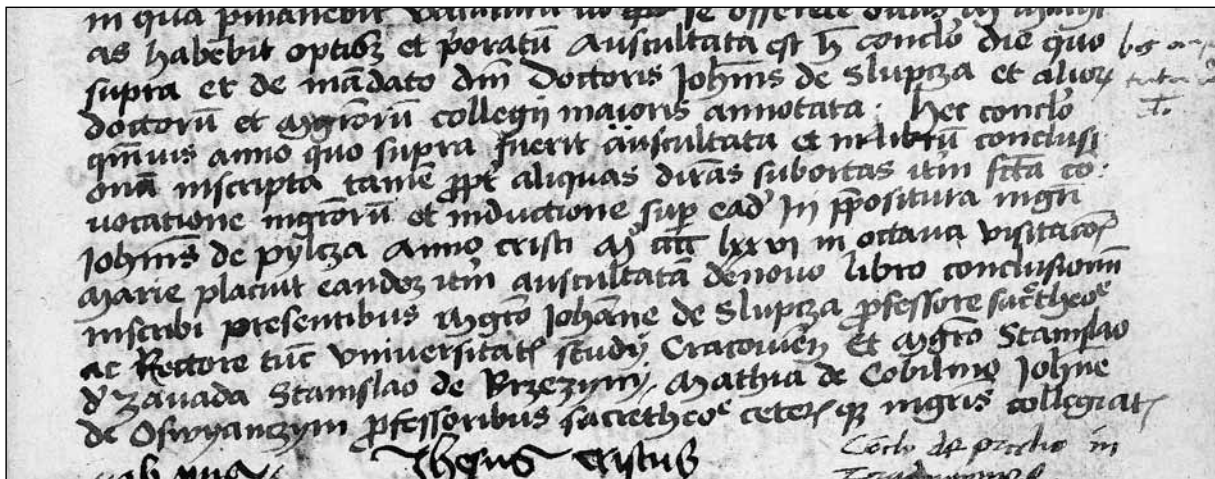 in qua pmanebit se offerete
as habebit optioz et p̄oratū Auscultata est h̄ conclō die quo
supra et de mādato dm̄ Doctoris Joh̄ms de Slupcza et alioꝝ
doctorū et mgr̄orū collegij maioris annotata · hec conclō
qm̄uis anno quo supra fuerit auscultata et in librū conclusi
onū inscripta tamē ꝓpt̄ aliquas dīr̄as subortas itm̄ fc̄ta cō:
vocatione mgr̄orū et inductione suꝑ ead̓ In p̄positura mgr̄i
Joh̄ms de pylcza Anno cristi Mͦ cccc lxxvi in octava visitacōꝭ
Marie placuit eandez itm̄ auscultatā denovo libro conclusionū
inscribi presentibus Mgr̄o Joh̄ane de Slupcza ꝓfessore sac̄theoͤ
ac Rectore tūc vniversitatꝭ studij Cracovien̄ Et Mgr̄o Stanislao
d̓ zavada Stanislao de Brzezyny, Mathia de Cobilino Joh̄ne
de Oswyanczym ꝓfessoribus sacretheoͤ ceterꝭ qꝫ mgr̄is collegiatꝭ
Jhesus cristus
Conclo de in